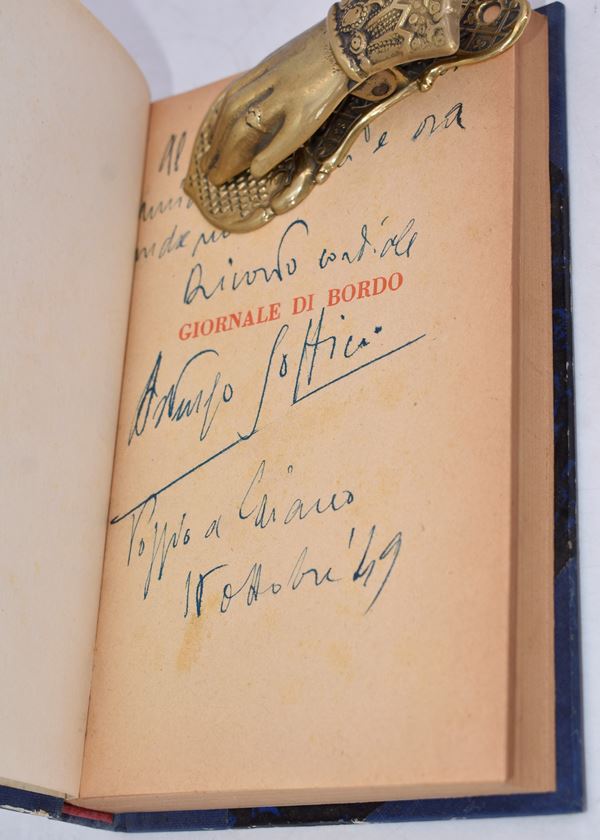 Al
e ora
Ricordo cordiale
GIORNALE DI BORDO
Ardengo Soffici
Poggio a Caiano
15 ottobre '49